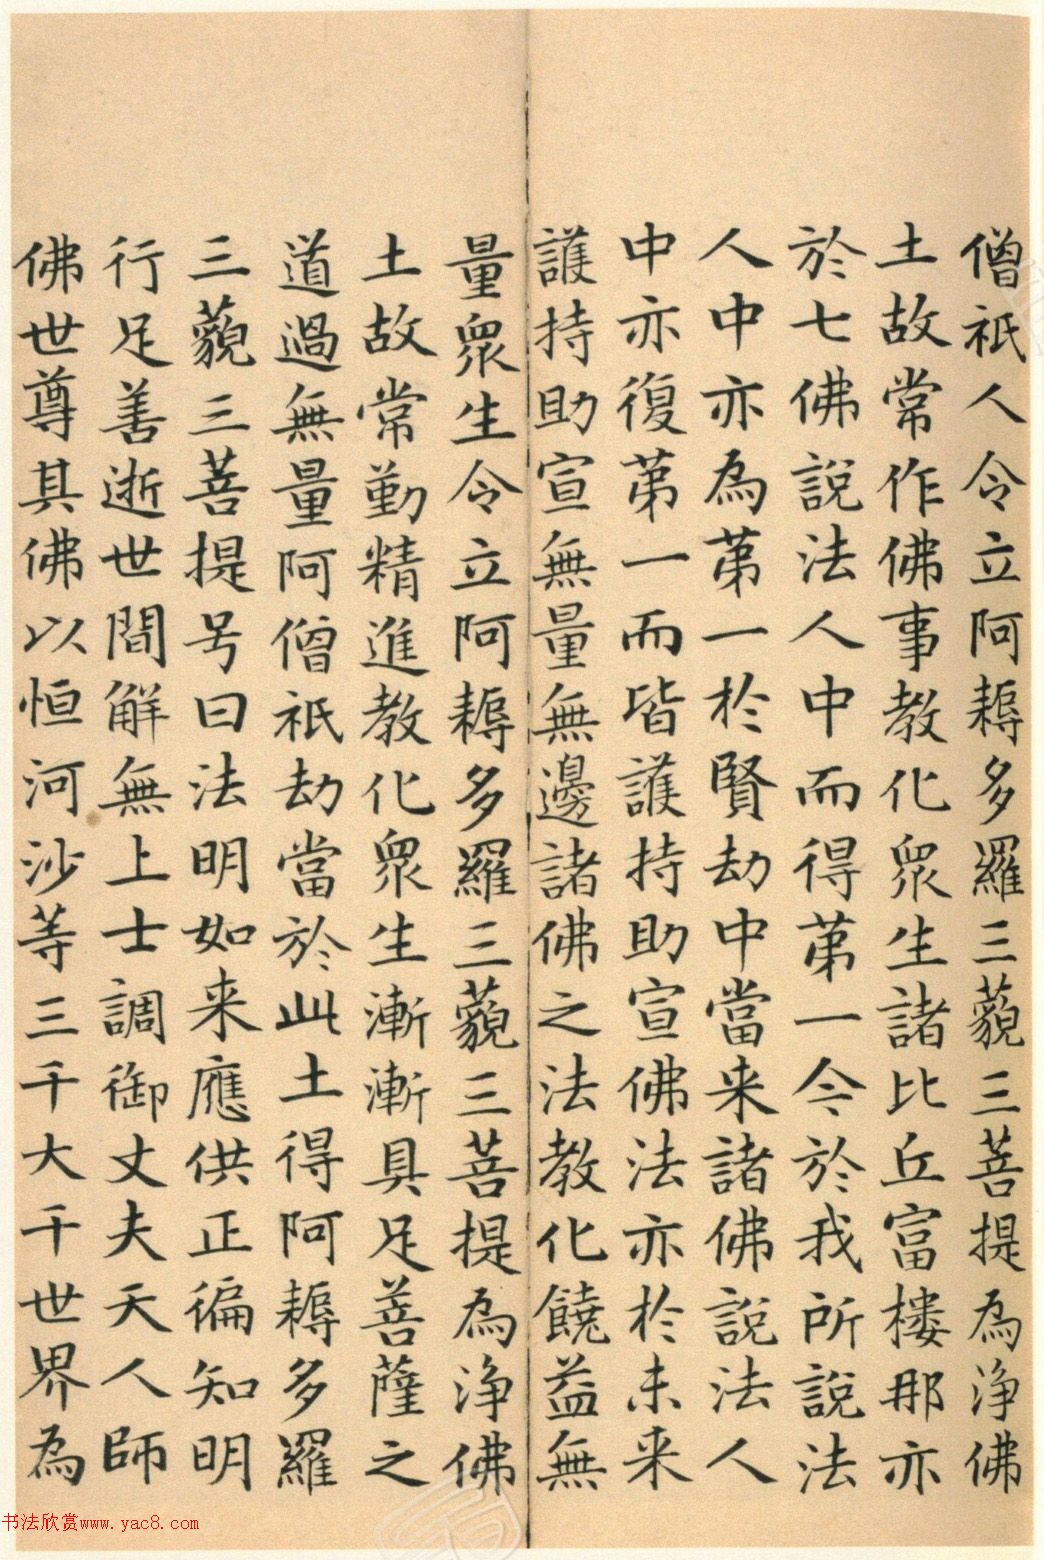 僧祇人令立阿耨多羅三藐三菩提為淨佛
土故常作佛事教化眾生諸比丘富樓那亦
於七佛說法人中而得第一今於我所說法
人中亦為第一於賢劫中當来諸佛說法人
中亦復第一而皆護持助宣佛法亦於未来
護持助宣無量無邊諸佛之法教化饒益無
量眾生令立阿耨多羅三藐三菩提為淨佛
土故常勤精進教化眾生漸漸具足菩薩之
道過無量阿僧祇劫當於此土得阿耨多羅
三藐三菩提号曰法明如来應供正徧知明
行足善逝世間解無上士調御丈夫天人師
佛世尊其佛以恒河沙等三千大千世界為
书法欣赏www.yac8.com